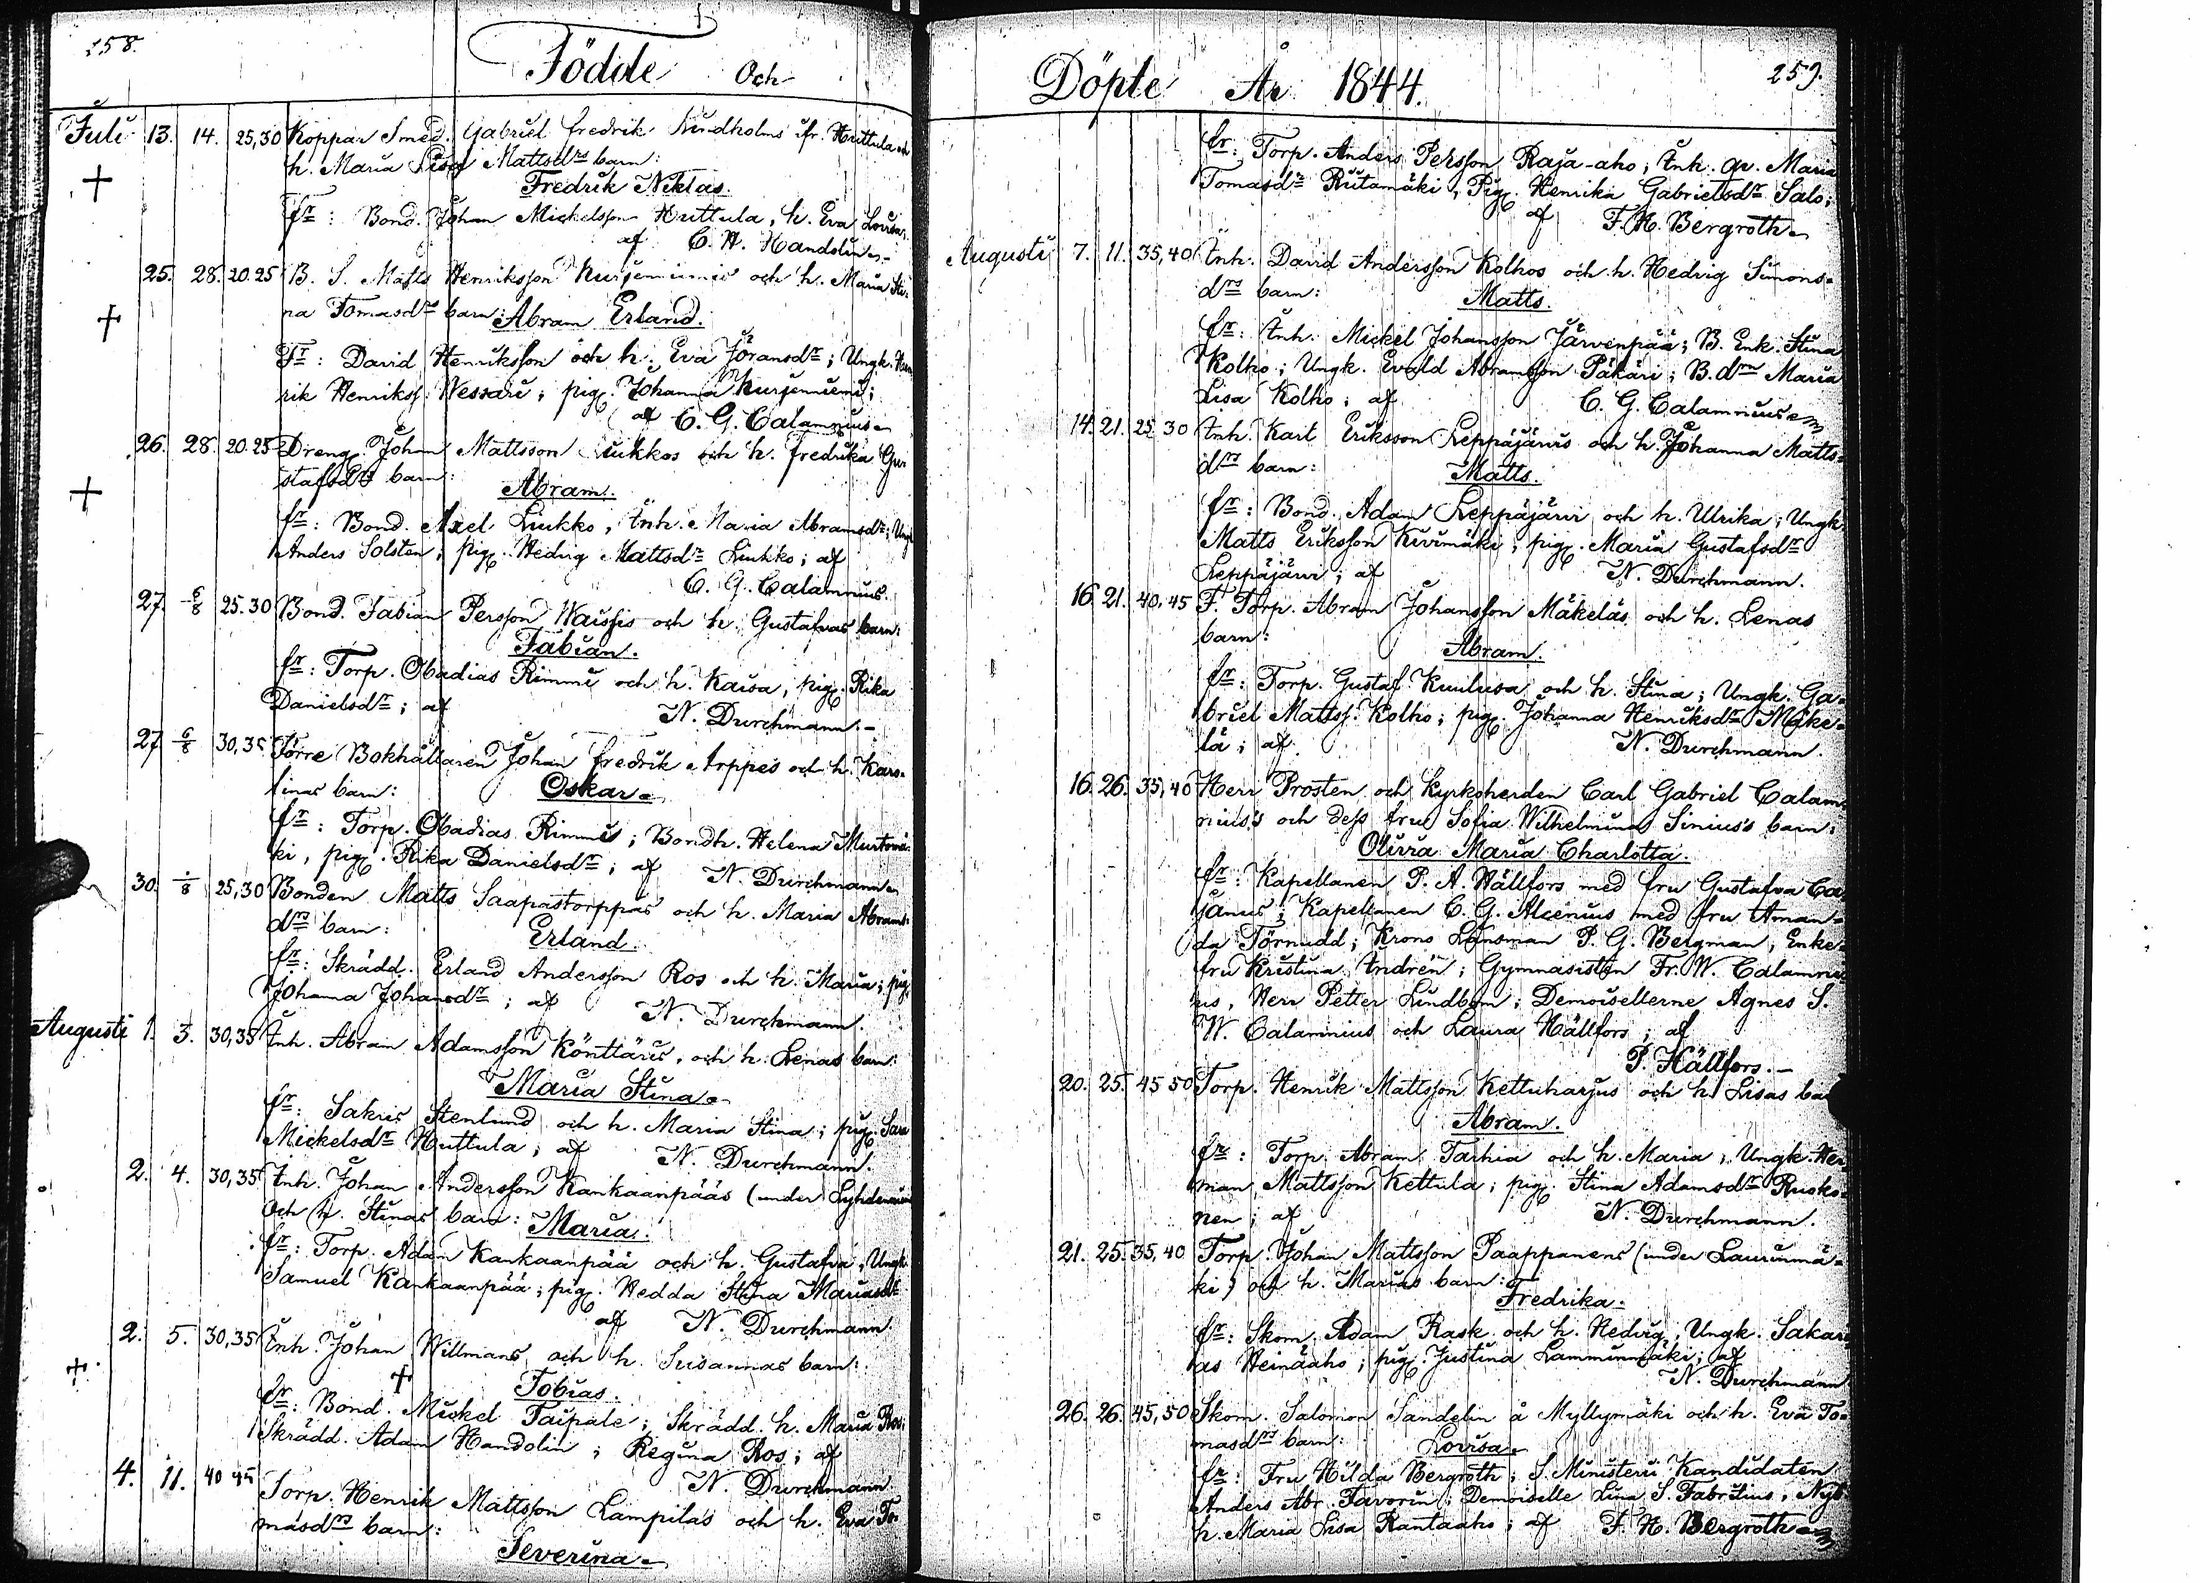 258.
Födde Och
Juli 13. 14. 25,30 Koppar Smed. Gabriel Fredrik Lindholms ifr. Huttula och
h. Maria Lisa Mattsdrs barn:
Fredrik Niklas.
fr: Bond. Johan Mickelsson Huttula, h. Eva Lovisa;
af C. H. Handolin
25. 28. 20.25 B. S. Matts Henriksson Kurjenniemis och h. Maria Sti-
na Tomasdrs barn: Abram Erland.
Fr: David Henriksson och h. Eva Jöransdr; Ungk. Hen-
rik Henrikss. Wessari; pig. Johanna Kurjenniemi;
af C. G. Calamnius
26. 28. 20.25 Dreng. Johan Mattsson Liukkos och h. Fredrika Gu-
stafsdrs barn:
Abram.
fr: Bond. Axel Liukko, Inh. Maria Abramsdr; Ungk.
Anders Solsten; pig. Hedvig Mattsdr Liukko; af
C. G. Calamnius.
27. 6/8 25.30 Bond. Fabian Persson Waissis och h. Gustafvas barn:
Fabian.
fr: Torp. Obadias Rimmi och h. Kaisa, pig. Rika
Danielsdr; af N. Durchmann.
27 6/8 30,35 Förre Bokhållaren Johan Fredrik Arppes och h. Karo-
linas barn: Oskar
fr: Torp. Obadias Rimmi; Bondh. Helena Murtomä-
ki, pig. Rika Danielsdr; af N. Durchmann
30. /8 25,30 Bonden Matts Saapastorppas och h. Maria Abrams-
drs barn: Erland.
fr: Skrädd. Erland Andersson Ros och h. Maria; pig.
Johanna Johansdr; af N. Durchmann.
Augusti 1. 3. 30,35 Inh. Abram Adamsson Könttäris, och h. Lenas barn:
Maria Stina
fr: Sakris Stenlund och h. Maria Stina; pig. Sara
Mickelsdr Huttula; af N. Durchmann.
2. 4. 30,35 Inh. Johan Andersson Kankaanpääs (under Syhdenniemi
och h. Stinas barn: Maria.
fr: Torp. Adam Kankaanpää och h. Gustafva, Ungk.
Samuel Kankaanpää; pig. Hedda Stina Mariasdr
af N. Durchmann
2. 5. 30,35 Inh. Johan Willmans och h. Susannas barn:
Tobias.
fr: Bond. Mickel Taipale; Skrädd. h. Maria Ros;
Skrädd. Adam Handolin; Regina Ros; af
N. Durchmann
4. 11. 40 45 Torp. Henrik Mattsson Lampilas och h. Eva To-
masdrs barn:
Severina
Döpte År 1844.
259.
fr: Torp. Anders Persson Raja-aho; Inh. qv. Maria
Tomasdr Riitamäki, Pig. Henrika Gabrielsdr Salo;
af F. H. Bergroth
Augusti 7. 11. 35,40 Inh. David Andersson Kolhos och h. Hedvig Simons-
drs barn: Matts.
fr: Inh. Mickel Johansson Järvenpää; B. Enk. Stina
Kolho; Ungk. Evald Abramsson Päkäri; B. dr Maria
Lisa Kolho; af C. G. Calamnius
14. 21. 25 30 Inh. Karl Eriksson Leppäjärvis och h. Johanna Matts-
drs barn: Matts.
fr: Bond. Adam Leppäjärvi och h. Ulrika; Ungk.
Matts Eriksson Kivimäki; pig. Maria Gustafsdr
Leppäjärvi; af N. Durchmann.
16. 21. 40,45 F. Torp. Abram Johansson Mäkeläs och h. Lenas
barn: Abram.
fr: Torp. Gustaf Kuulusa och h. Stina; Ungk. Ga-
briel Mattss. Kolho; pig. Johanna Henriksdr Mäke-
lä; af N. Durchmann.
16. 26. 35,40 Herr Prosten och Kyrkoherden Carl Gabriel Calam-
nius's och dess fru Sofia Wilhelmina Sinius's barn:
Olivia Maria Charlotta.
fr: Kapellanen P. A. Hällfors med fru Gustafva Ca-
janus; Kapellanen C. G. Alcenius med fru Aman-
da Törnudd; Krono Länsman P. G. Bergman, Enke-
fru Kristina Andrén; Gymnasisten Fr. W. Calamni-
us, Herr Petter Lindbom; Demoisellerne Agnes S.
W. Calamnius och Laura Hällfors; af
P. Hällfors.
20. 25. 45 50 Torp. Henrik Mattsson Kettuharjus och h. Lisas ba
Abram.
fr: Torp. Abram Tarhia och h. Maria; Ungk. Her-
man Mattsson Kettula; pig. Stina Adamsdr Rusko-
nen; af N. Durchmann.
21. 25. 35,40 Torp. Johan Mattsson Paappanens (under Laurinmä-
ki) och h. Marias barn:
Fredrika.
fr: Skom. Adam Rask och h. Hedvig, Ungk. Sakari-
as Heinäaho; pig. Justina Lamminmäki; af
N. Durchmann
26. 26. 45,50 Skom. Salomon Sandelin å Myllymäki och h. Eva To-
masdrs barn: Lovisa
fr: Fru Hilda Bergroth; S. Ministerii Kandidaten
Anders Abr. Favorin; Demoiselle Lina S. Fabritius, Nyb.
h. Maria Lisa Rantaaho; af F. H. Bergroth